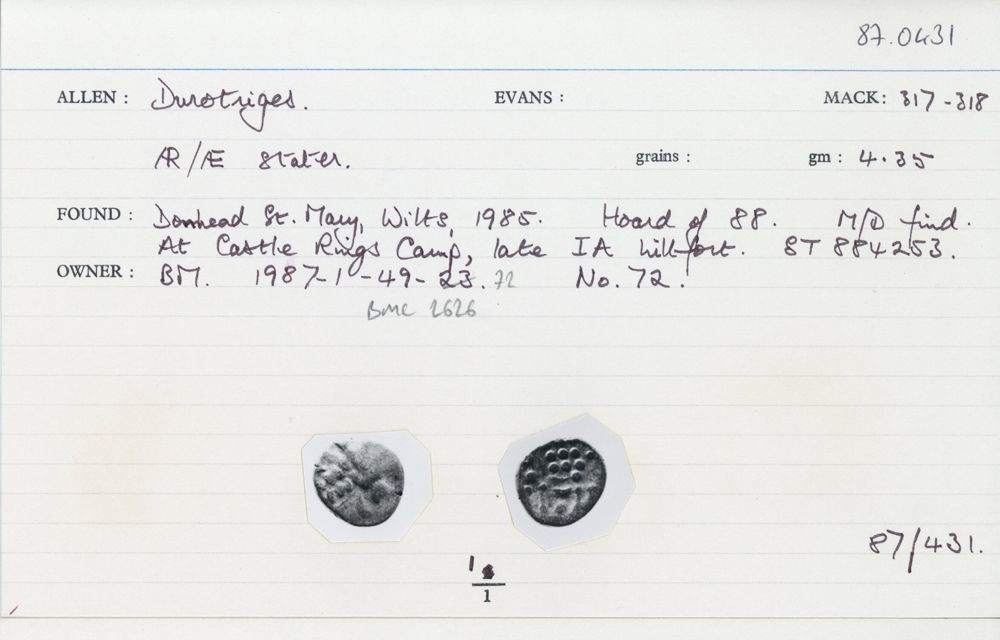 87.0431
ALLEN : Durotriges. EVANS : MACK: 317-318
ÆR/Æ Stater. grains : gm : 4.35
FOUND : Donhead St. Mary, Wilts, 1985. Hoard of 88. M/D find.
At Castle Rings Camp, late IA hill-fort. ST 884253.
OWNER : BM. 1987-1-49-23. 72 No. 72.
BMC 2626
87/431.
1
1